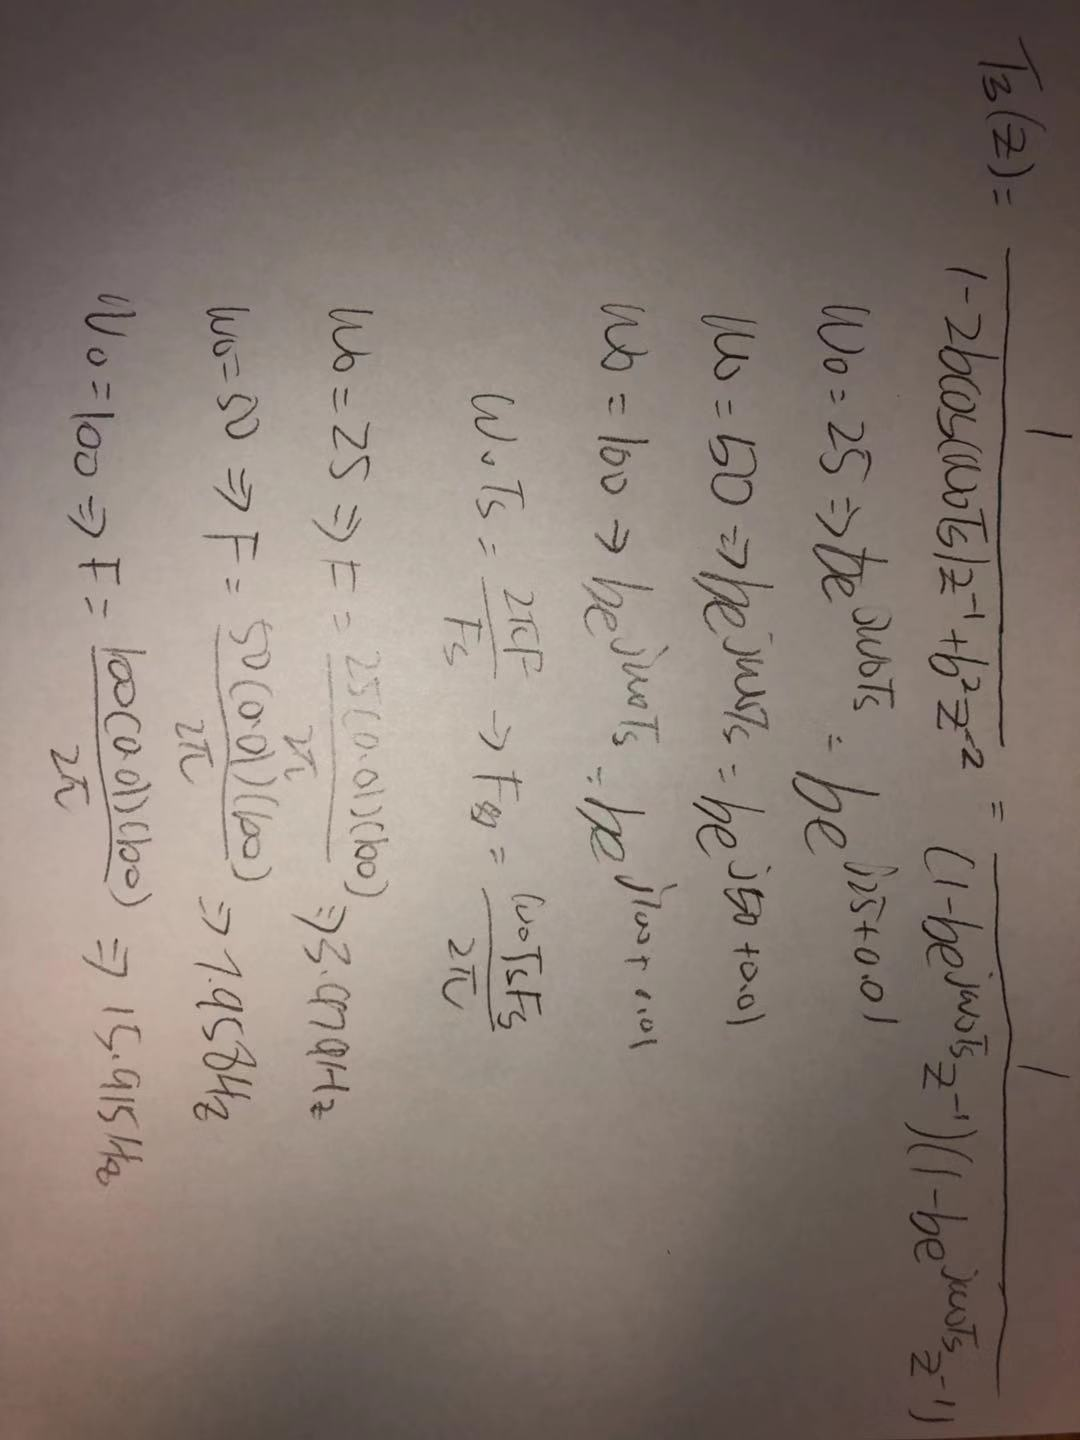 T3(z) = 1 / (1-2bcos(w0Ts)z^-1+b^2z^-2) = 1 / ((1-be^jw0Ts z^-1)(1-be^jw0Ts z^-1))
w0=25 => be^jw0Ts = be^j25+0.01
w0=50 => be^jw0Ts = be^j50+0.01
w0=100 → be^jw0Ts = be^j100+0.01
w0Ts = 2πF/Fs → F = w0TsFs/2π
w0=25 => F = 25(0.01)(100)/2π => 3.979Hz
w0=50 => F = 50(0.01)(100)/2π => 7.958Hz
w0=100 => F = 100(0.01)(100)/2π => 15.915Hz